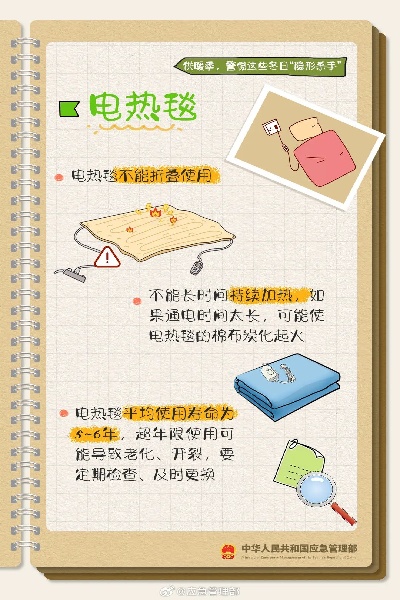 供暖季，警惕这些冬日“隐形杀手”
电热毯
电热毯不能折叠使用
不能长时间持续加热，如
果通电时间太长，可能使
电热毯的棉布炭化起火
电热毯平均使用寿命为
5-6年，超年限使用可
能导致老化、开裂，要
定期检查、及时更换
中华人民共和国应急管理部
@应急管理部